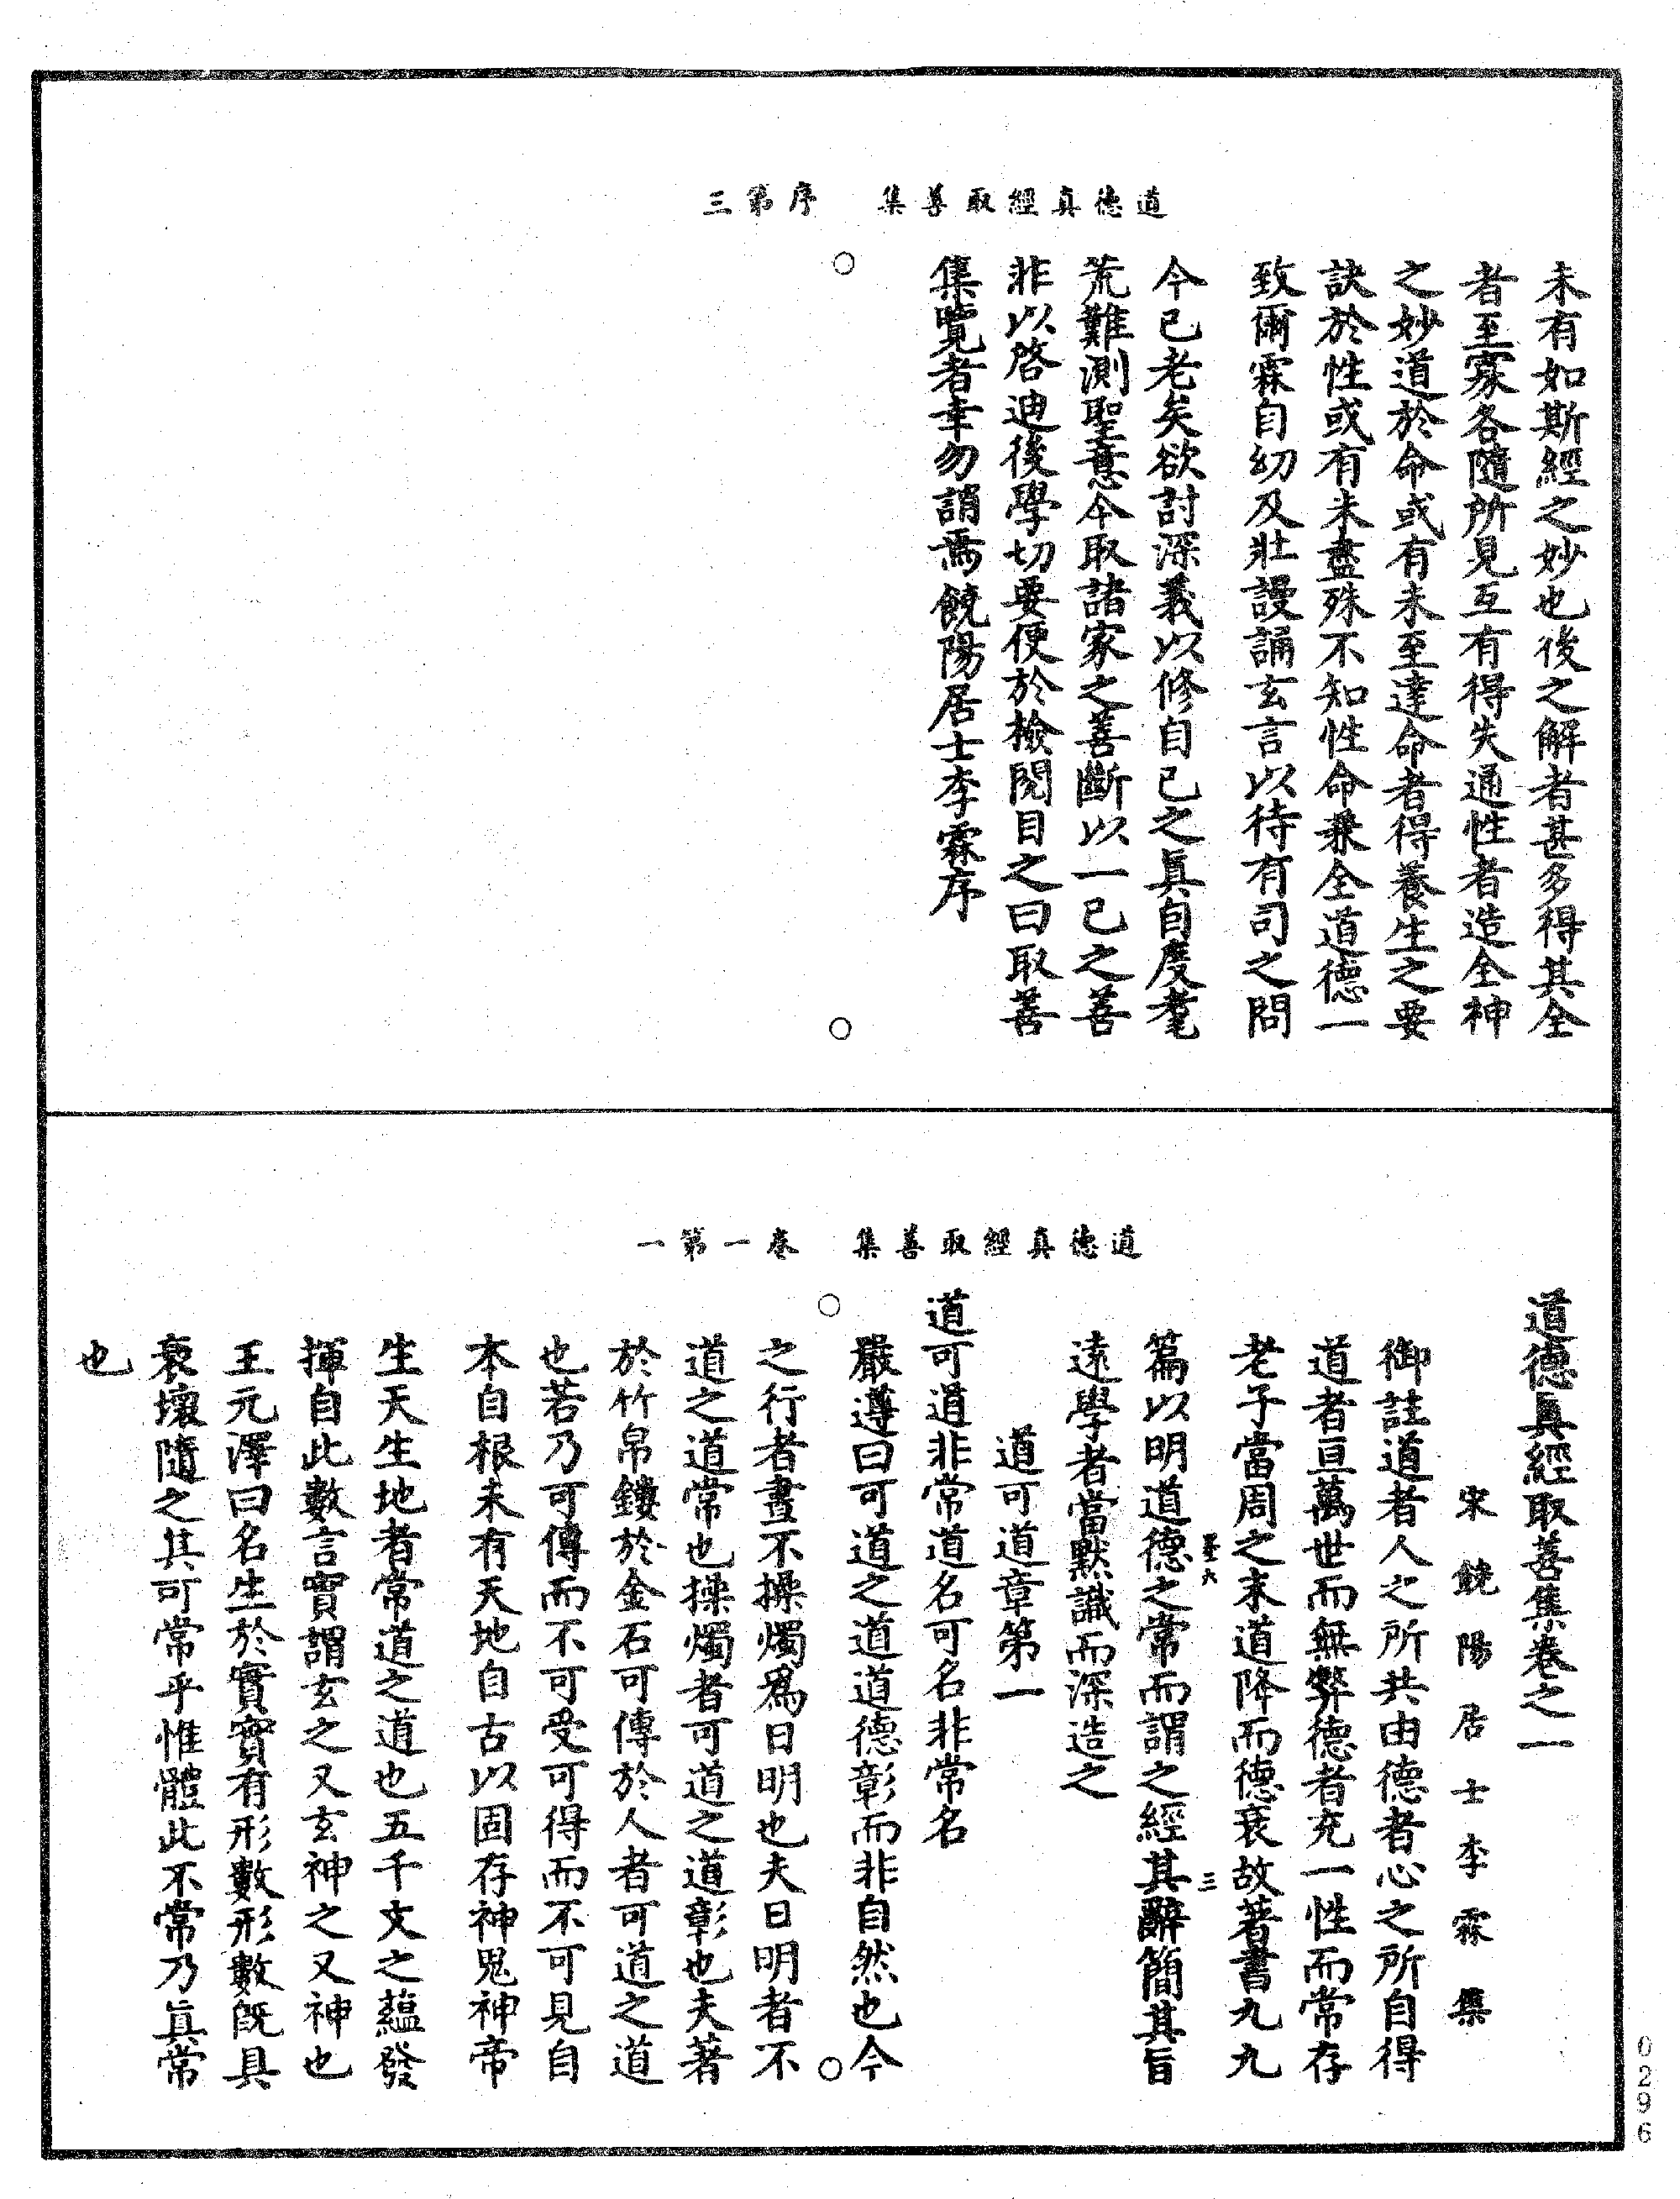 道德真經取善集　序第三
未有如斯經之妙也後之解者甚多得其全
者至寡各隨所見互有得失通性者造全神
之妙道於命或有未至達命者得養生之要
訣於性或有未盡殊不知性命兼全道德一
致爾霖自幼及壯謾誦玄言以待有司之問
今已老矣欲討深義以修自己之真自度耄
荒難測聖意今取諸家之善斷以一己之善
非以啓迪後學切要便於檢閱目之曰取善
集覽者幸勿誚焉饒陽居士李霖序
道德真經取善集　卷一第一
道德真經取善集卷之一
宋饒陽居士李霖集
御註道者人之所共由德者心之所自得
道者亘萬世而無弊德者充一性而常存
老子當周之末道降而德衰故著書九九
篇以明道德之常而謂之經其辭簡其旨
遠學者當默識而深造之
道可道章第一
道可道非常道名可名非常名
嚴遵曰可道之道道德彰而非自然也今
之行者晝不操燭爲日明也夫日明者不
道之道常也操燭者可道之道彰也夫著
於竹帛鏤於金石可傳於人者可道之道
也若乃可傳而不可受可得而不可見自
本自根未有天地自古以固存神鬼神帝
生天生地者常道之道也五千文之蘊發
揮自此數言實謂玄之又玄神之又神也
王元澤曰名生於實實有形數形數既具
衰壞隨之其可常乎惟體此不常乃真常
也
三
0296